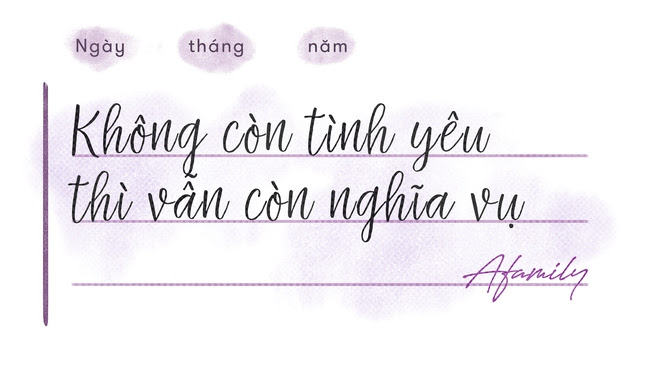 Ngày tháng năm
Không còn tình yêu
thì vẫn còn nghĩa vụ
Afamily